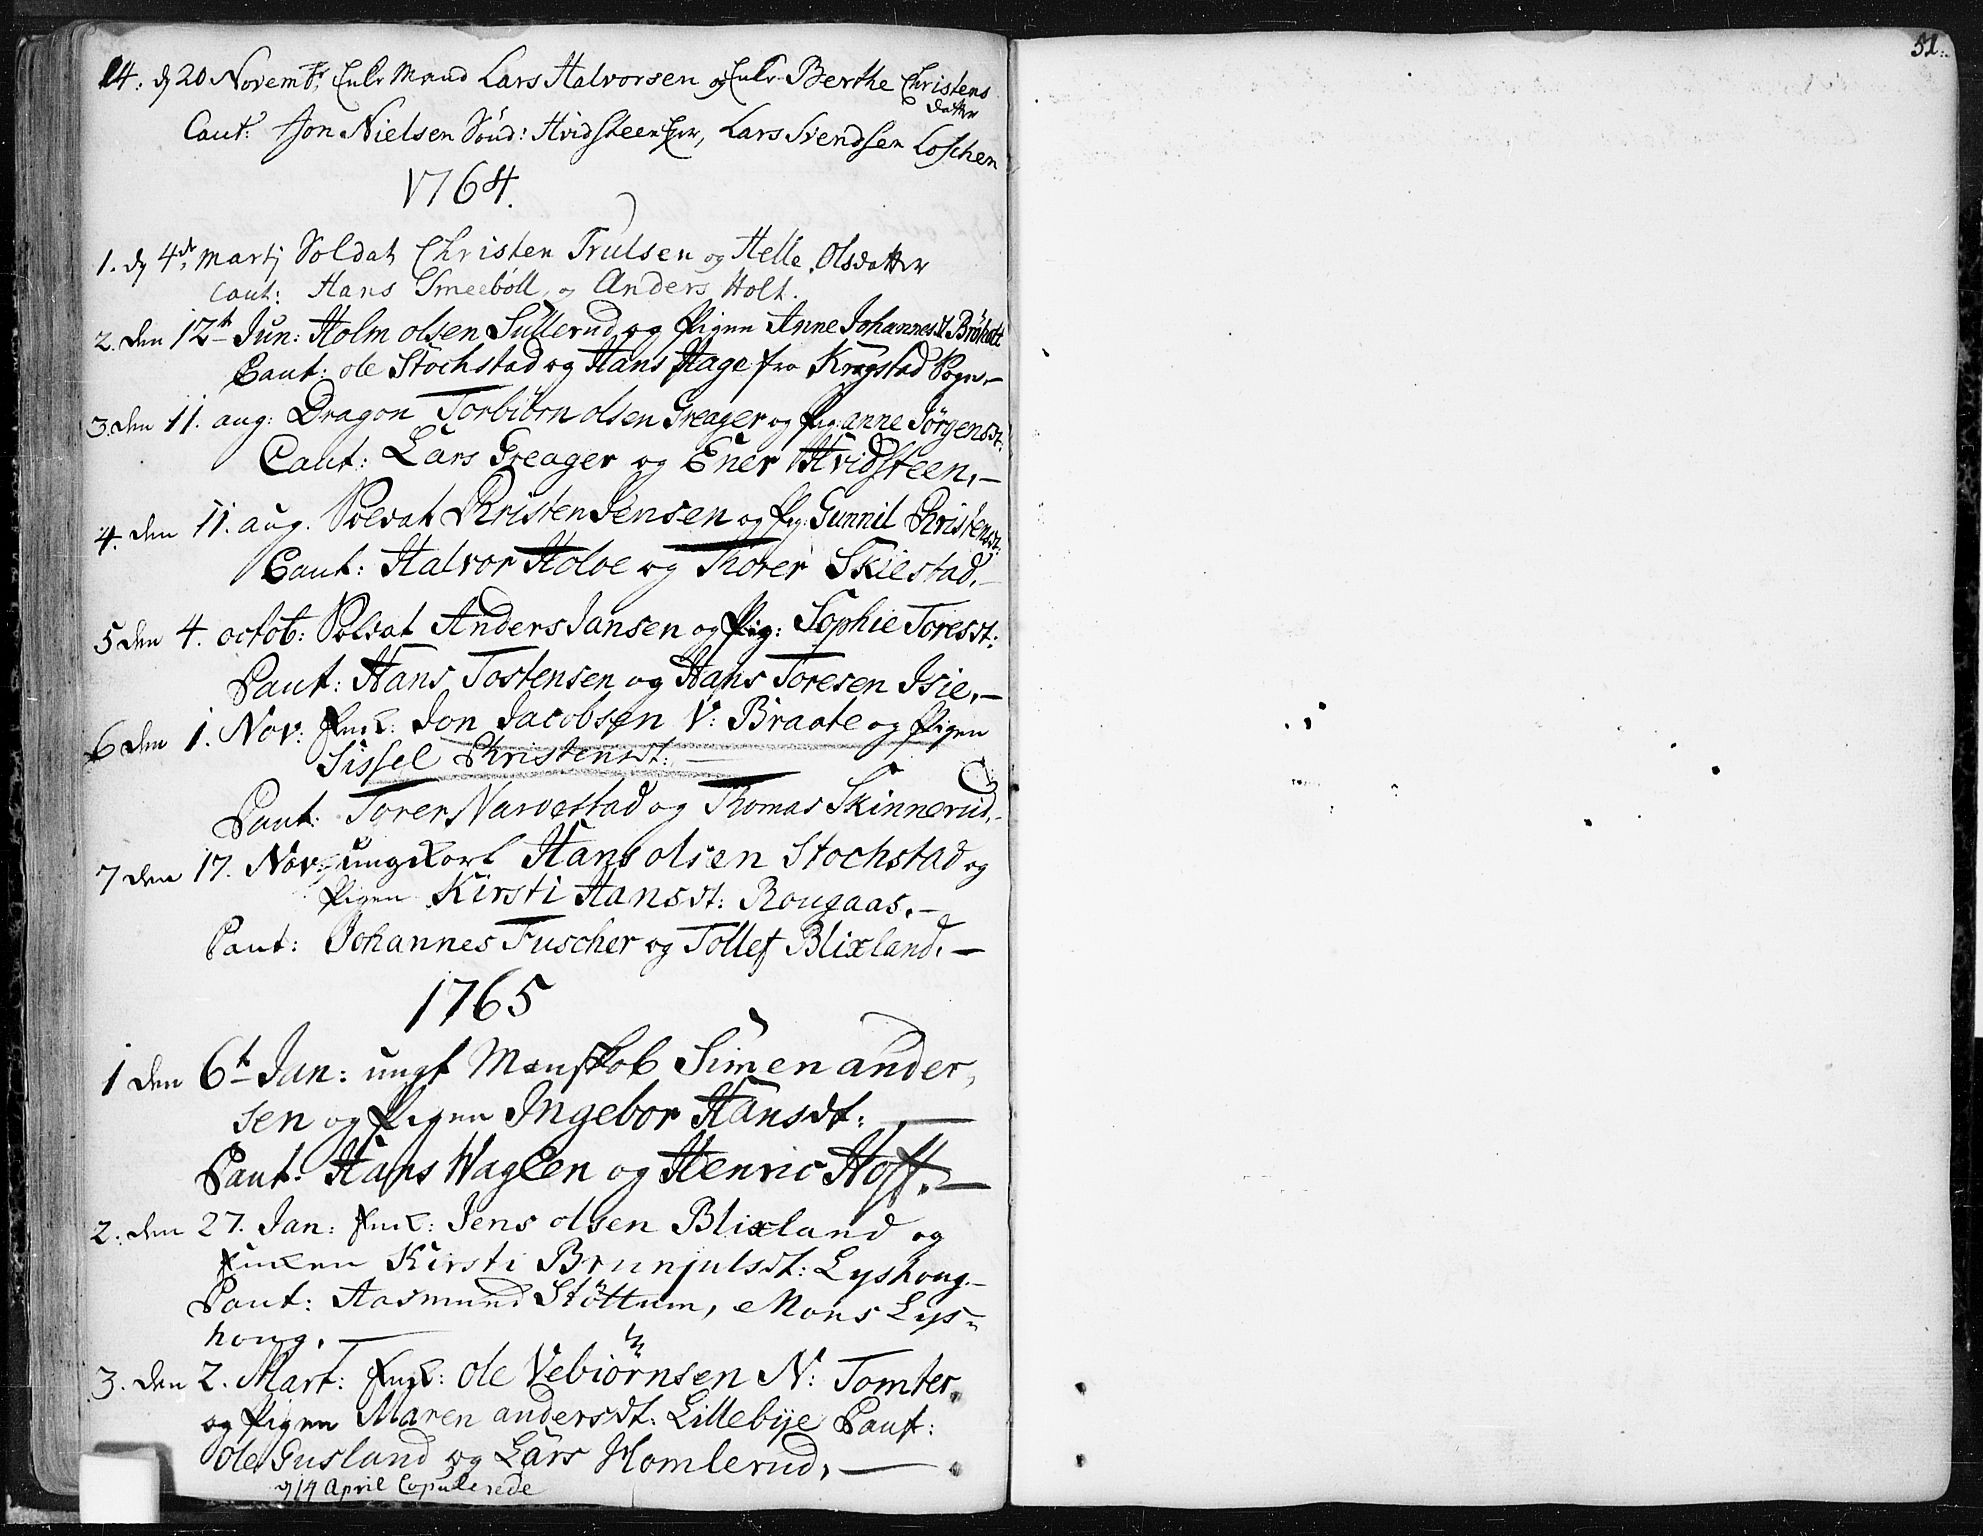 51.
14. d 20 Novembr Enke Mand Lars Halvorsen og Enke Berthe Christens
datter
Caut: Jon Nielsen Sønd: Hvidsteen, Lars Svendsen Loschen
1764.
1. d 4de Martj Soldat Christen Trulsen og Helle Olsdatter
Caut: Hans Smeebøll, og Anders Holt.
2. den 12t Jun: Holm olsen Sullerud og Pigen Anne Johannesdt Bråhatt
Caut: ole Stochstad og Hans Hage fra Kragstad Sogn.-
3. den 11. aug: Dragon Torbiörn olsen Greager og Pig: anne Jörgensdt.
Caut: Lars Greager og Ener Hvidsteen.-
4. den 11. aug. Soldat Christen Jensen og Pig: Gunnil Christensdt.
Caut: Halvor Holoe og Thorer Skiestad.-
5 den 4. octob: Soldat Anders Jansen og Pig: Sophie Toresdt:
Caut: Hans Tostensen og Hans Toresen Isie.-
6 den 1. Nov: Enk: Jon Jacobsen V: Braate og Pigen
Sissel Christensdt: -
Caut: Torer Narvestad og Thomas Skinnerud.-
7 den 17. Nov: ungkarl Hans olsen Stochstad og
Pigen Kirsti Hansdt: Rougaas.-
Caut: Johannes Fuscher og Tollef Blixland. -
1765
1 den 6t Jan: ungt Manskob Simen ander,
sen og Pigen Ingebor Hansdt: -
Caut: Hans Waglen og Henric Hoff. -
2. den 27. Jan: Enk: Jens olsen Blixland og
Enken Kirsti Brunjulsdt: Lyshoug.-
Caut: Aasmund Støttum, Mons Lys-
houg. -
3. den 2. Mart: Enk: ole Vebiörnsen N: Tomter
og Pigen Maren andersdt: Lillebye Caut:
ole Gusland og Lars Homlerud. -
d 14 April Copulerede